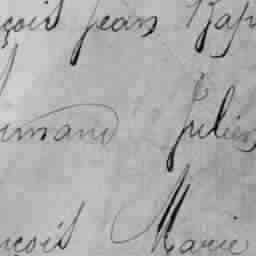 çois Jean Bap
mand Julien
nçois Marie